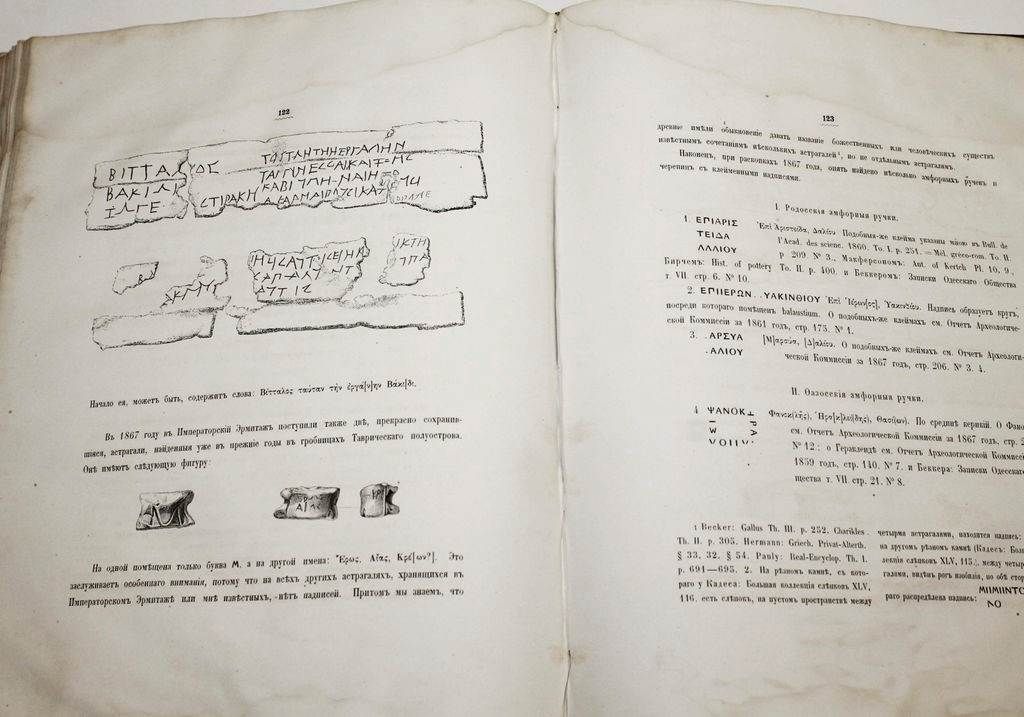 122
ΒΙΤΤΑ
ΒΑΚΙΛ
Начало ея, можетъ быть, содержитъ слова: Βίτταλος ταύταν τὴν
Въ 1867 году въ Императорскій Эрмитажъ поступили также двѣ, прекрасно сохранив-
шіяся, астрагали, найденныя уже въ прежніе годы въ гробницахъ Таврическаго полуострова.
Онѣ имѣютъ слѣдующую фигуру:
На одной помѣщена только буква М, а на другой имена: Ἔρως, Αἴας, Κρέ[ων?]. Это
заслуживаетъ особеннаго вниманія, потому что на всѣхъ другихъ астрагаляхъ, хранящихся въ
Императорскомъ Эрмитажѣ или мнѣ извѣстныхъ, нѣтъ надписей. Притомъ мы знаемъ, что
123
древніе имѣли обыкновеніе давать названіе божественныхъ или человѣческихъ существъ
извѣстнымъ сочетаніямъ нѣсколькихъ астрагалей¹, но не отдѣльнымъ астрагалямъ.
Наконецъ, при раскопкахъ 1867 года, опять найдено нѣсколько амфорныхъ ручекъ и
черепицъ съ клейменными надписями.
I. Родосскія амфорныя ручки.
1. ΕΠΙΑΡΙΣ Ἐπὶ Ἀριστείδα, Δαλίου. Подобныя-же клейма указаны мною въ Bull. de
ΤΕΙΔΑ l'Acad. des scienc. 1860. To. I. p. 251. — Mél. gréco-rom. To. II.
ΛΑΛΙΟΥ p. 209. № 3., Макферсономъ: Ant. of Kertch Pl. 10, 9.,
Бирчемъ: Hist. of pottery To. II. p. 400. и Беккеромъ: Записки Одесскаго Общества
т. VII. стр. 6. № 10.
2. ΕΠΙΙΕΡΩΝ. .ΥΑΚΙΝΘΙΟΥ Ἐπὶ Ἱέρων[ος], Ὑακινθίου. Надпись образуетъ кругъ,
посреди котораго помѣщенъ balaustium. О подобныхъ-же клеймахъ см. Отчетъ Археологиче-
ской Коммиссіи за 1861 годъ, стр. 173. № 1.
3. .ΑΡΣΥΑ [Μ]αρσύα, [Δ]αλίου. О подобныхъ-же клеймахъ см. Отчетъ Археологи-
.ΑΛΙΟΥ ческой Коммиссіи за 1867 годъ, стр. 206. № 3. 4.
II. Ѳазосскія амфорныя ручки.
4 ΨΑΝΟΚ Φανοκ[λῆς], Ἡρα[κ]λε[ίδης], Θασί[ων]. По срединѣ керикій. О Фано
см. Отчетъ Археологической Коммиссіи за 1867 годъ, стр.
№ 12.; о Гераклеидѣ см. Отчетъ Археологической Коммисс
1859 годъ, стр. 140. № 7. и Беккера: Записки Одесскаг
щества т. VII. стр. 21. № 8.
1 Becker: Gallus Th. III. p. 252. Charikles
Th. II. p. 305. Hermann: Griech. Privat-Alterth.
§ 33, 32. § 54. Pauly: Real-Encyclop. Th. I.
p. 691—695. 2. На рѣзномъ камнѣ, съ кото-
раго у Кадеса: Большая коллекція слѣпковъ XLV,
116. есть слѣпокъ, на пустомъ пространствѣ между
четырьмя астрагалами, находится надпись:
на другомъ рѣзномъ камнѣ (Кадесъ: Бол
лекція слѣпковъ XLV, 115.), между четыр
галами, видѣнъ рогъ изобилія, по обѣ стор
раго распредѣлена надпись: ΜΙΙΜΙΙΝΤΟ
ΛΟ